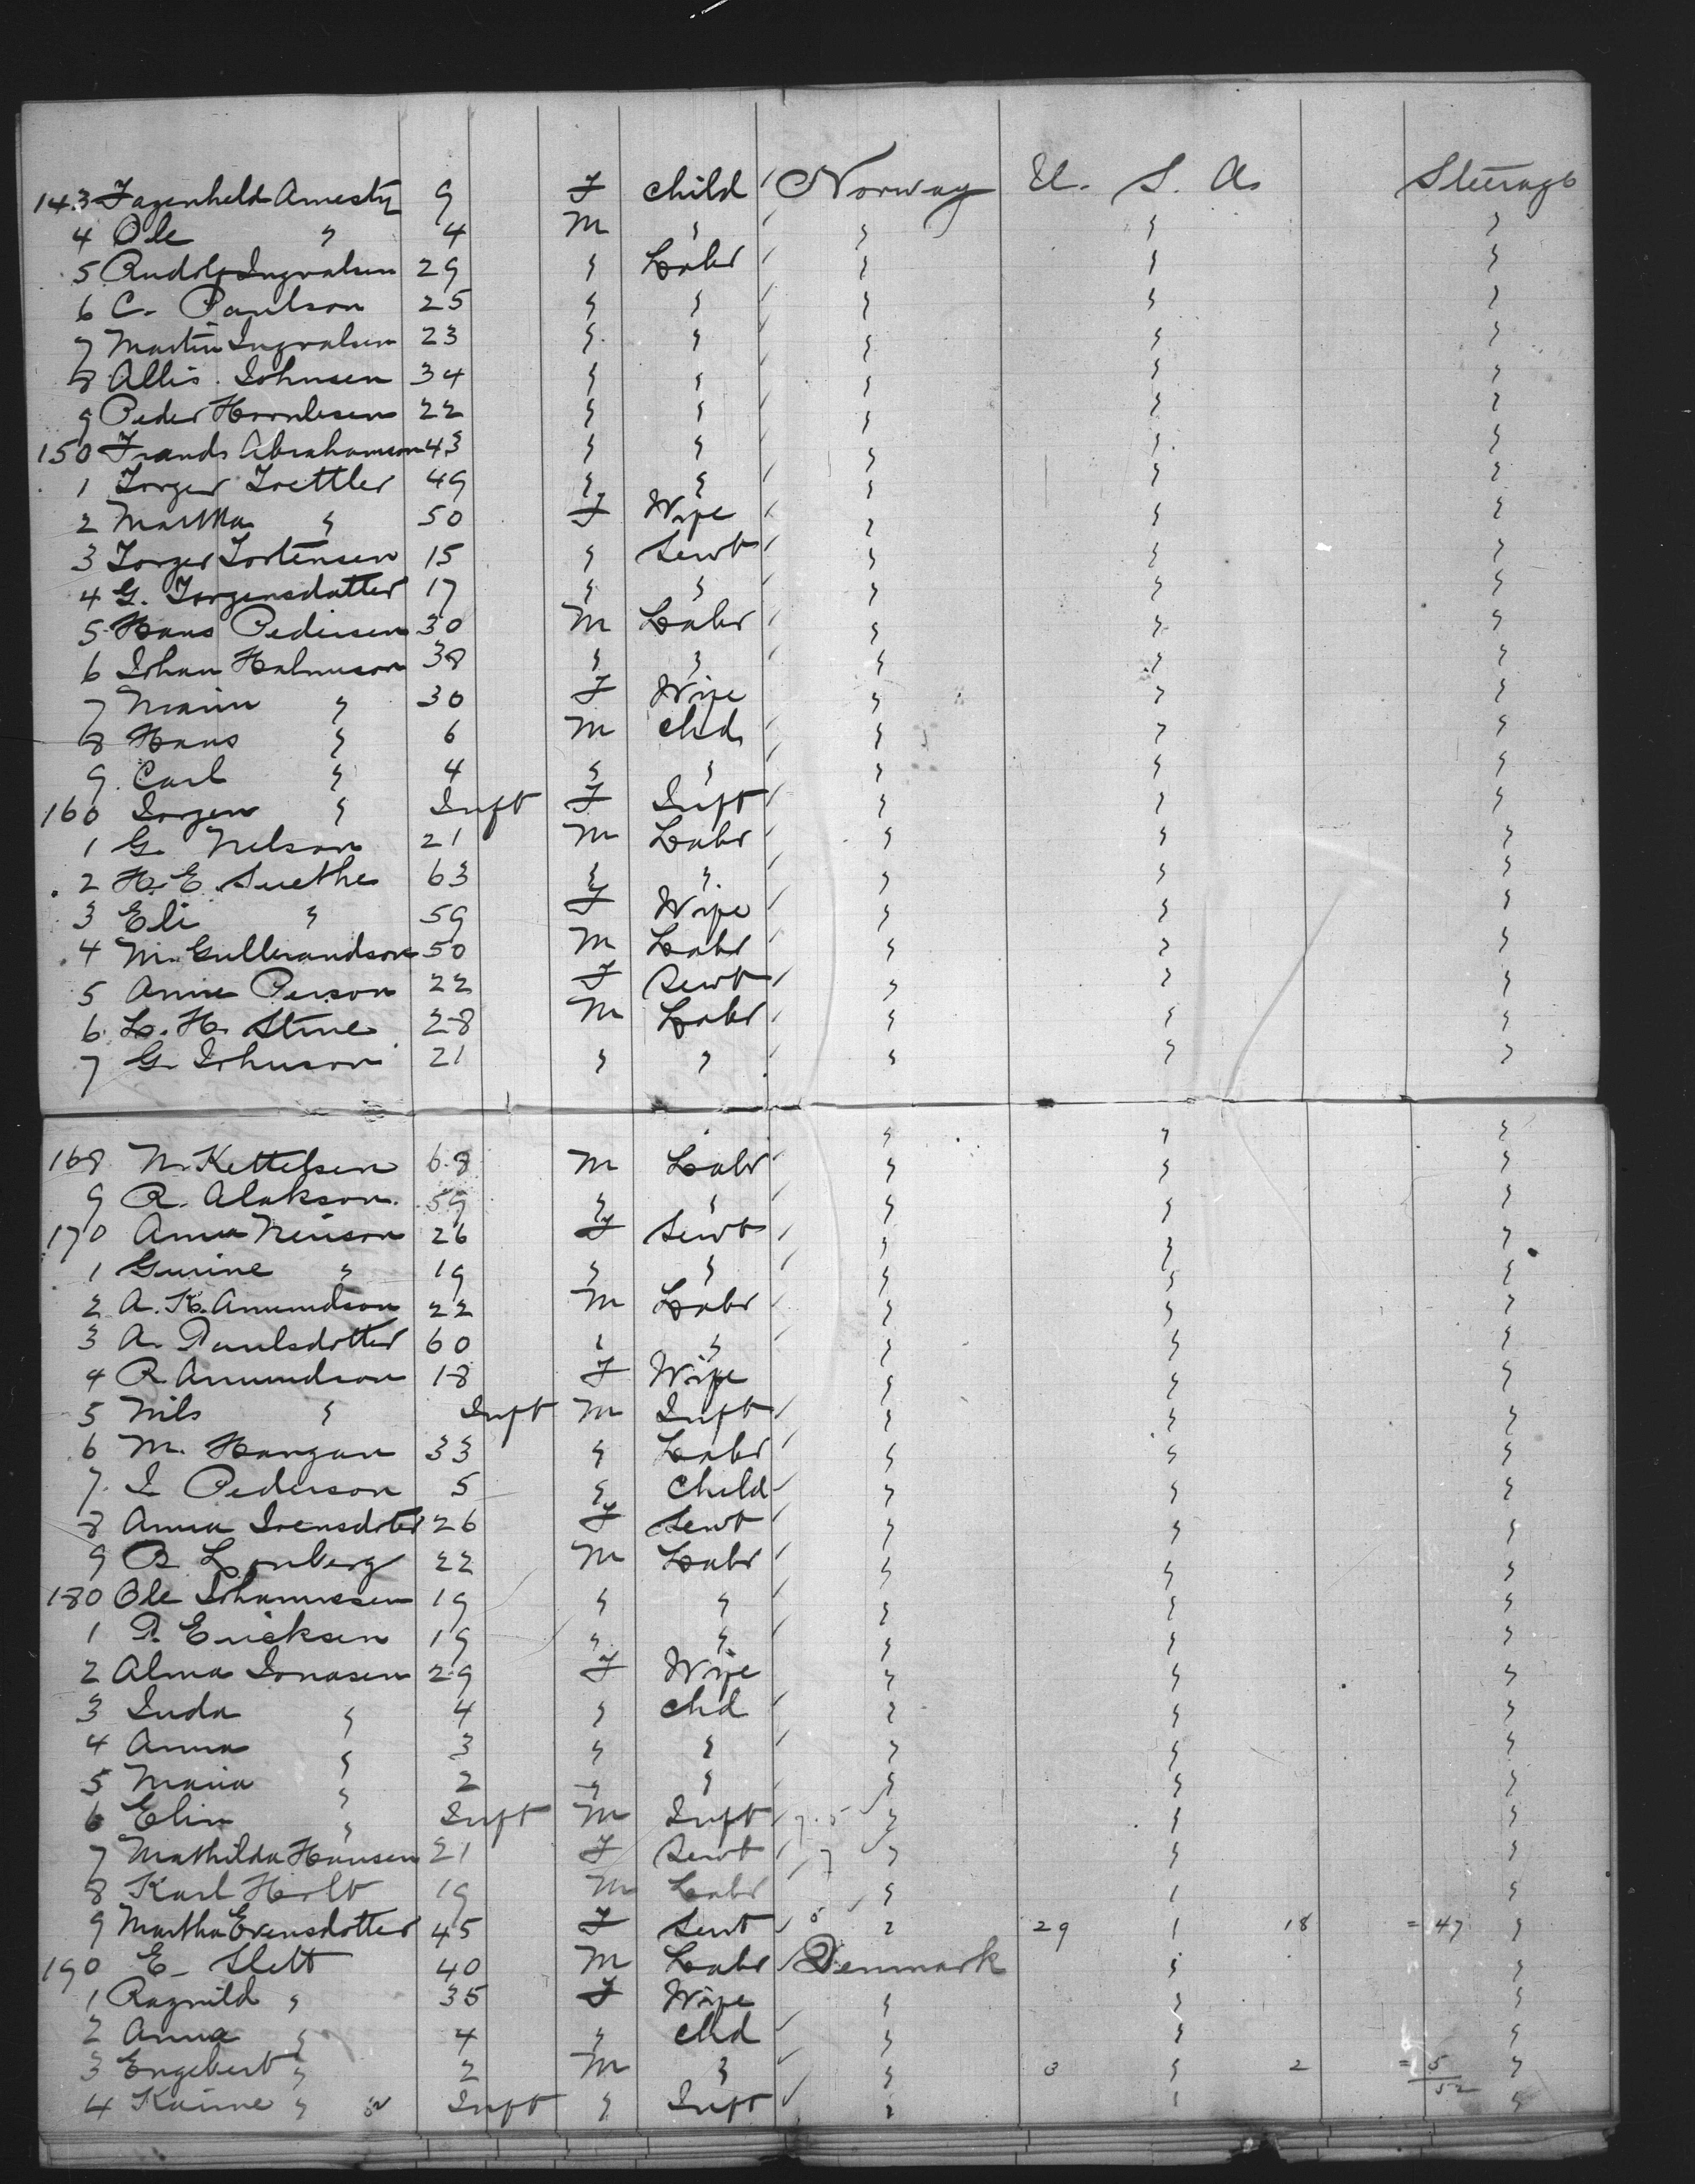 143 Fagenheld Amesty 9 F child Norway U. S. A. Steerage
4 Ole " 4 M " " " "
5 Rudolf Ingvalsen 29 " Labr " " "
6 C. Paulson 25 " " " " "
7 Martin Ingvalsen 23 " " " " "
8 Allis Johnsen 34 " " " " "
9 Peder 22 " " " " "
150 Frands Abrahamson 43 " " " " "
1 Torger 49 " " " " "
2 Martha " 50 F Wife " " "
3 Torger Tortensen 15 " Sevt " " "
4 G. Torgensdatter 17 " " " " "
5 Hans Pedersen 30 M Labr " " "
6 Johan Halmuson 38 " " " " "
7 Marin " 30 F Wife " " "
8 Hans " 6 M chd " " "
9 Carl " 4 " " " " "
160 Jorgen " Inft F Inft " " "
1 G. Nelson 21 M Labr " " "
2 H. E. Suethe 63 " " " " "
3 Eli " 59 F Wife " " "
4 M. Gulbrandson 50 M Labr " " "
5 Anne Person 22 F Sevt " " "
6 L. H. Stine 28 M Labr " " "
7 G. Johnson 21 " " " " "
" " "
168 N. Kettelsen 68 M Labr " " "
9 R. Alakson 59 " " " " "
170 Anna 26 F Sevt " " "
1 Gurine " 19 " " " " "
2 A. K. Amundson 22 M Labr " " "
3 A. Paulsdotter 60 " " " " "
4 R Amundson 18 F Wife " " "
5 Nils " Inft M Inft " " "
6 M. Hangan 33 " Labr " " "
7 I Pederson 5 " Child " " "
8 Anna Ivensdoter 26 F Sevt " " "
9 B Lonberg 22 M Labr " " "
180 Ole Johannssen 19 " " " " "
1 P. Ericksen 19 " " " " "
2 Alma Jonasen 29 F Wife " " "
3 Inda " 4 " chd " " "
4 Anna " 3 " " " " "
5 Maria " 2 " " " " "
6 Elin " Inft M Inft 7.5 " " "
7 Mathilda Hansen 21 F Sevt 7 " " "
8 Karl Holt 19 M Labr " " "
9 Martha Evensdotter 45 F Sevt 5 " 29 " 18 = 47 "
190 E. Slett 40 M Labr Denmark " "
1 Ragnild " 35 F Wife " " "
2 Anna " 4 " chd " " "
3 Engebert " 2 M " " 3 " 2 = 5 "
52
4 Karine " Inft " Inft " " "